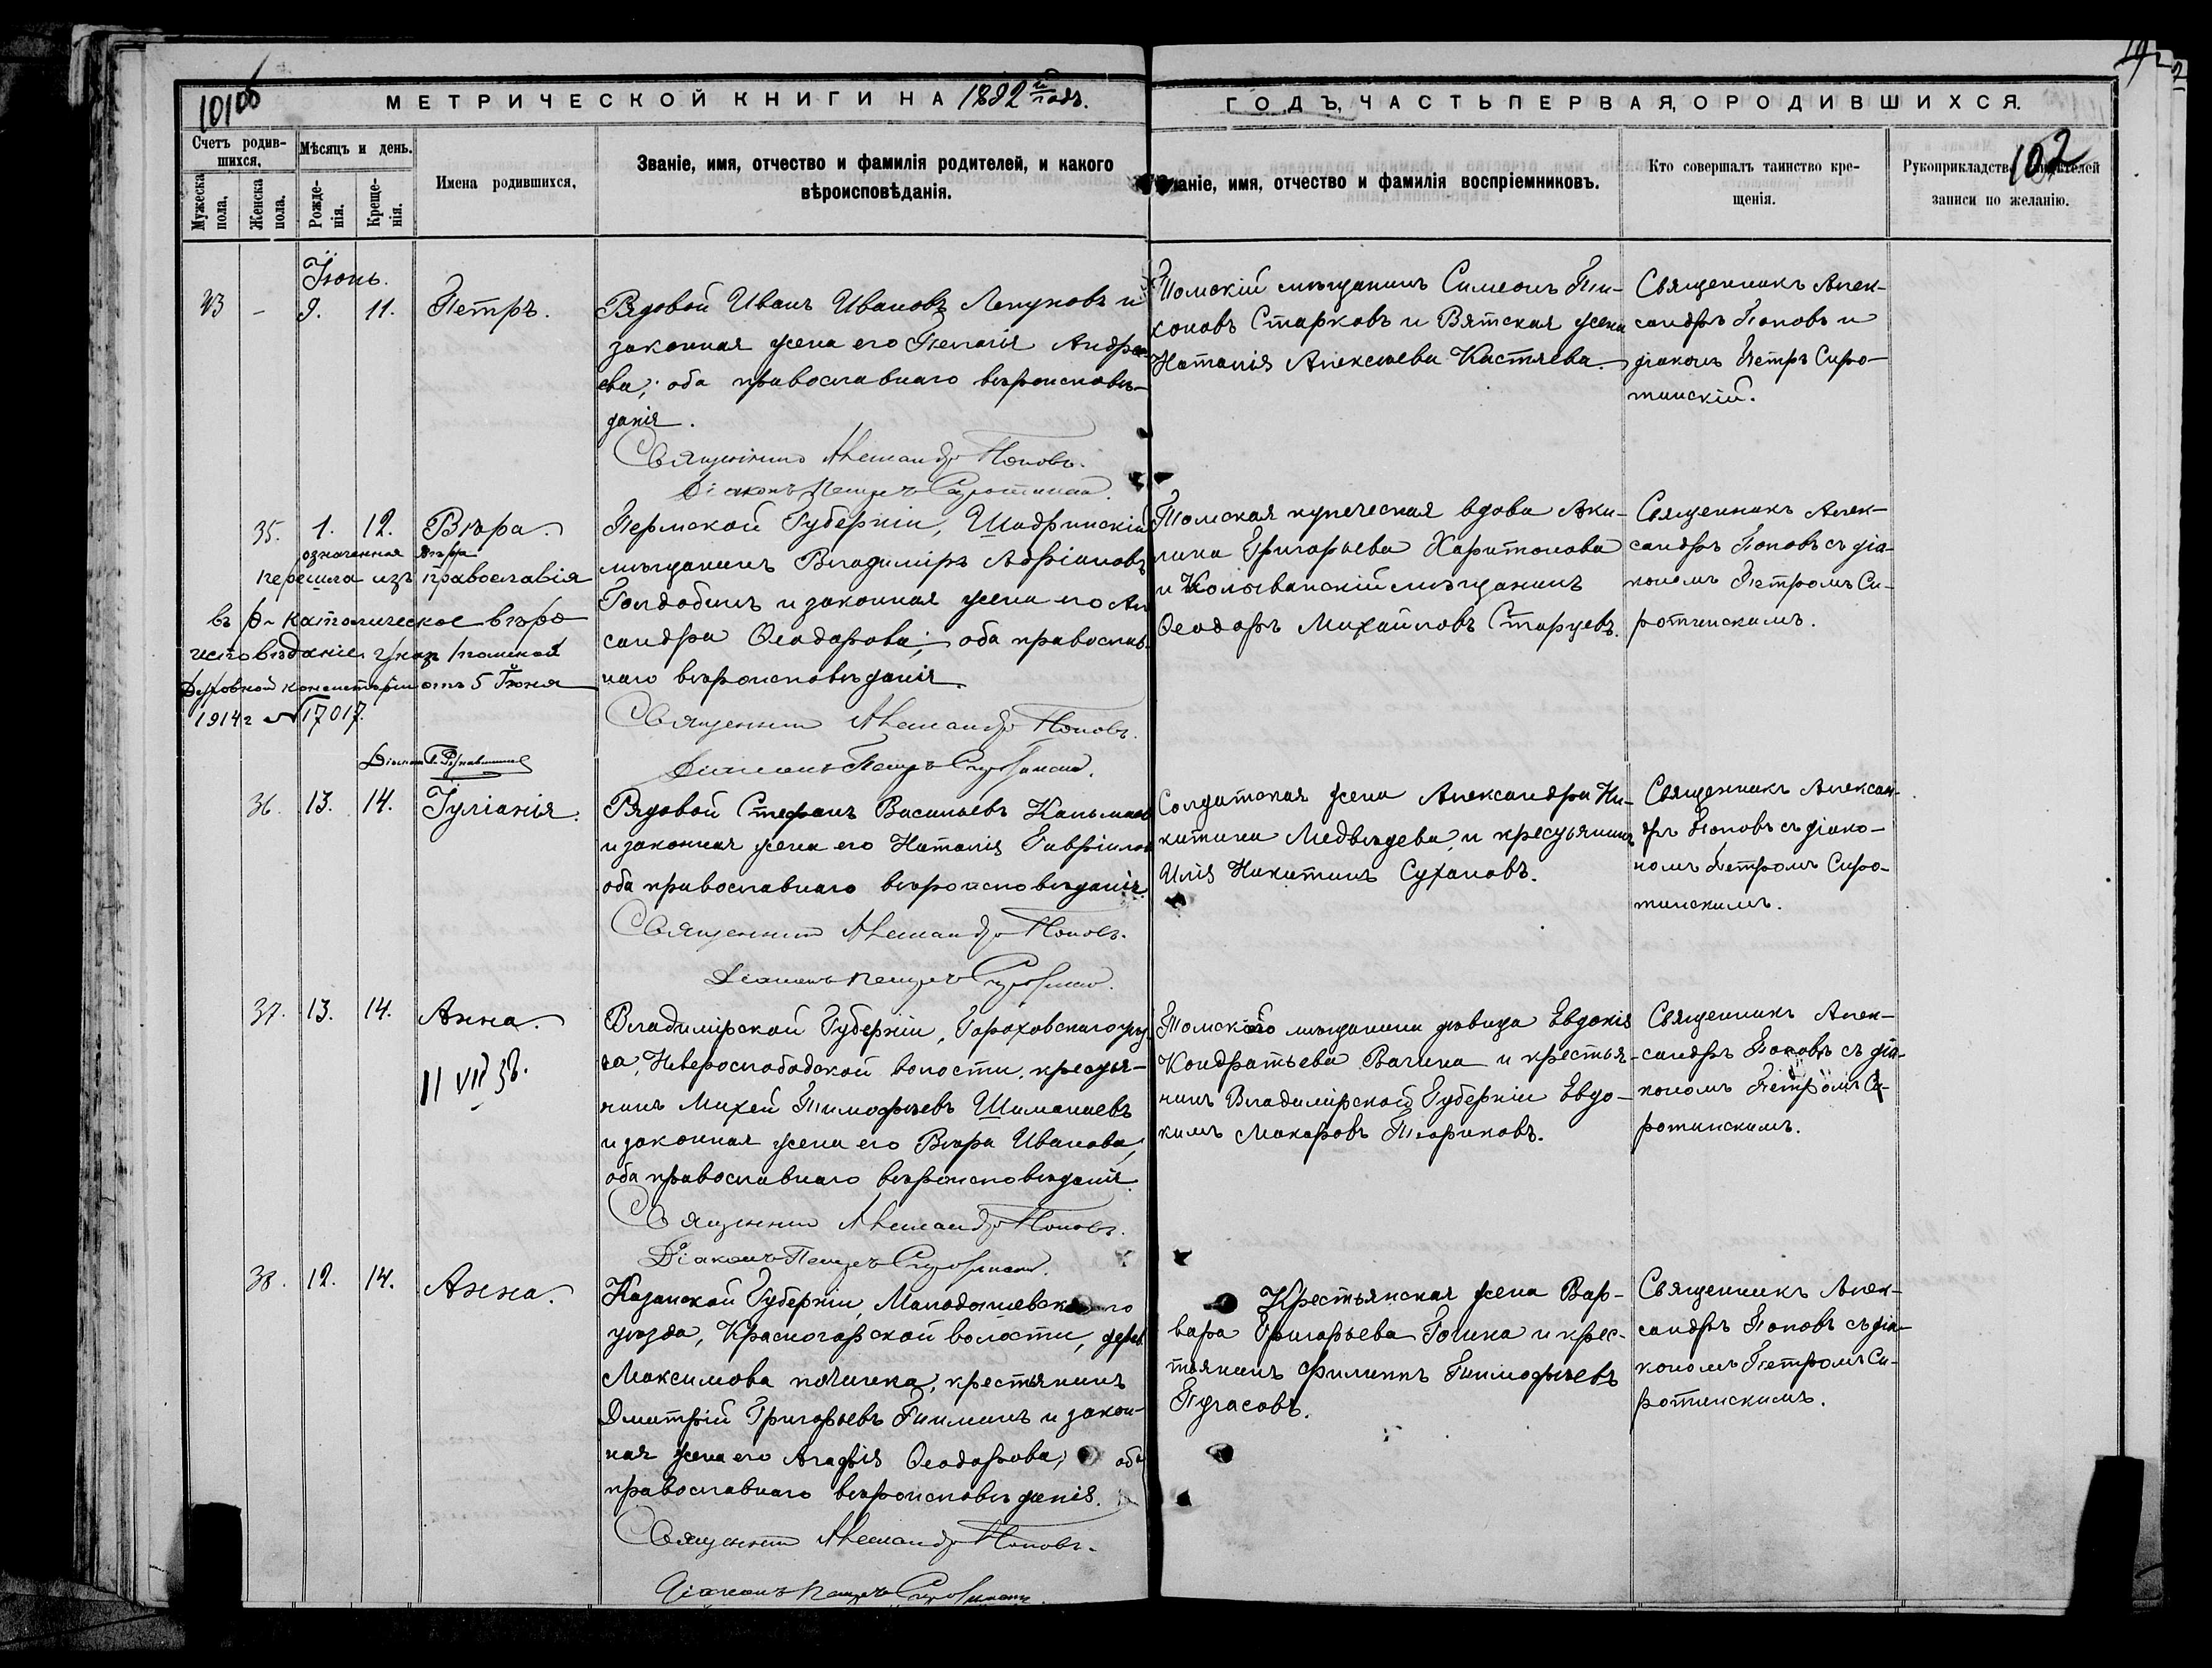 101об
МЕТРИЧЕСКОЙ КНИГИ НА 1892й годъ.
Счетъ родившихся,
Мужеска пола.
Женска пола.
Мѣсяцъ и день.
Рожденія.
Крещенія.
Имена родившихся,
Званіе, имя, отчество и фамилія родителей, и какого
вѣроисповѣданія.
ГОДЪ, ЧАСТЬ ПЕРВАЯ, О РОДИВШИХСЯ.
102
Званіе, имя, отчество и фамилія воспріемниковъ.
Кто совершалъ таинство кре-
щенія.
Рукоприкладство свидѣтелей
записи по желанію.
Іюнь.
43 - 9. 11. Петръ.
Рядовой Иванъ Ивановъ Лепуновъ и
законная жена его Пелагія Андре-
ева; оба православнаго вѣроисповѣ-
данія.
Священникъ Александръ Поповъ.
Діаконъ Петръ Сиротинскій.
Томскій мѣщанинъ Симеонъ Ти-
хоновъ Старковъ и Вятская жена
Наталія Алексѣева Костяева.
Священникъ Алек-
сандръ Поповъ и
діаконъ Петръ Сиро-
тинскій.
35. 1. 12. Вѣра.
означенная Вѣра
перешла изъ православія
въ р-католическое вѣро
исповѣданіе. Указ Томской
Духовной консисторіи отъ 5 Іюня
1914 г № 17017.
Діаконъ
Пермской Губерніи, Шадринскій
мѣщанинъ Владиміръ Адріановъ
Голдобинъ и законная жена его Алек
сандра Ѳеодорова; оба православ-
наго вѣроисповѣданія.
Священникъ Александръ Поповъ.
Діаконъ Петръ Сиротинскій.
Томская купеческая вдова Аки-
лина Григорьева Харитонова
и Колыванскій мѣщанинъ
Ѳеодоръ Михайловъ Старцевъ.
Священникъ Алек-
сандръ Поповъ съ діа-
кономъ Петромъ Си-
ротинскимъ.
36. 13. 14. Іуліанія.
Рядовой Стефанъ Васильевъ Калмыковъ
и законная жена его Наталія Гавріилова
оба православнаго вѣроисповѣданія.
Священникъ Александръ Поповъ.
Діаконъ Петръ Сиротинскій.
Солдатская жена Александра Ни-
китина Медвѣдева и крестьянинъ
Илія Никитинъ Сухановъ.
Священникъ Алексан-
дръ Поповъ съ діако-
номъ Петромъ Сиро-
тинскимъ.
37. 13. 14. Анна.
11 VII 38.
Владимірской Губерніи, Гороховскаго уѣз
да, Неверослободской волости, крестья-
нинъ Михей Тимоѳѣевъ Шиманаевъ
и законная жена его Вѣра Иванова,
оба православнаго вѣроисповѣданія.
Священникъ Александръ Поповъ.
Діаконъ Петръ Сиротинскій.
Томскаго мѣщанина дѣвица Евдокія
Кондратьева Вагина и крестья-
нинъ Владимірской Губерніи Евдо-
кимъ Макаровъ Тюриковъ.
Священникъ Алек-
сандръ Поповъ съ діа-
кономъ Петромъ Си-
ротинскимъ.
38. 12. 14. Анна.
Казанской Губерніи, Малодышевскаго
уѣзда, Красногорской волости, дерев.
Максимова починка, крестьянинъ
Дмитрій Григорьевъ Пиминъ и закон-
ная жена его Агафія Ѳеодорова, оба
православнаго вѣроисповѣданія.
Священникъ Александръ Поповъ.
Діаконъ Петръ Сиротинскій.
Крестьянская жена Вар-
вара Григорьева Гошна и крес-
тьянинъ Филиппъ Тимоѳѣевъ
Пугасовъ.
Священникъ Алек-
сандръ Поповъ съ діа-
кономъ Петромъ Си-
ротинскимъ.